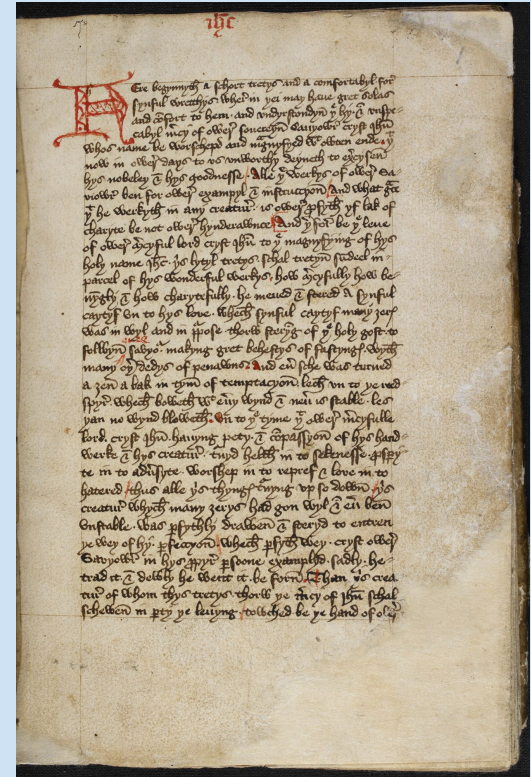 7
ihc
Here begynnyth a schort tretys and a comfortabyl for
synful wrecchys wher in þei may haue gret solas
and cōfort to hem and vndyrstondyn þe hy & vnspe-
cabyl mcy of ower souereyn sauyowr cryst ihū
whos name be worschepd and magnyfyed wtowten ende þt
now in ower days to vs vnworthy deyneth to exercysen
hys nobeley & hys goodnesse. Alle þe werkys of ower sa-
viowr ben for ower exampyl & instruccyon and what gce
þt he werkyth in any creatur is ower profyth yf lak of
charyte be not ower hynderawnce And þerfor be þe leue
of ower mcyful lord cryst ihū to þe magnyfying of hys
holy name ihc þis lytyl tretys schal tretyn sumdeel in
parcel of hys wonderful werkys how mcyfully how be-
nyngly & how charytefully he meued & stered a synful
caytyf vn to hys love. whech synful caytyf many ȝerys
was in wyl and in ppose thorw steryng of þe holy gost to
folwyn savyor making gret behestys of fastyngs wyth
ower
many oþ dedys of penawns. And eū sche was turned
a ȝen a bak in tym of temptacyon lech vn to þe red
spyr whech boweth wt eūy wynd & neū is stable les
þan no wynd bloweth. vn to þe tyme þt ower mcyfulle
lord cryst ihū hauyng pety & cōpassyon of hys hand-
werke & hys creatur tnyd helth in to sekenesse. pspy-
te in to adūsyte. worshep in to repref & love in to
hatered thus alle þis thyngs tnyng vp so down þis
creatur whych many ȝerys had gon wyl & eū ben
vnstable was pfythly drawen & steryd to entren
þe wey of hy pfeccyon whech pfyth wey cryst ower
Savyowr in hys ppyr psoone examplyd. sadly he
trad it & dewly he went it be forn. Than þis crea
tur of whom thys tretys thorw þe mcy of ihū schal
schewen in pty þe leuyng towched be þe hand of owyr